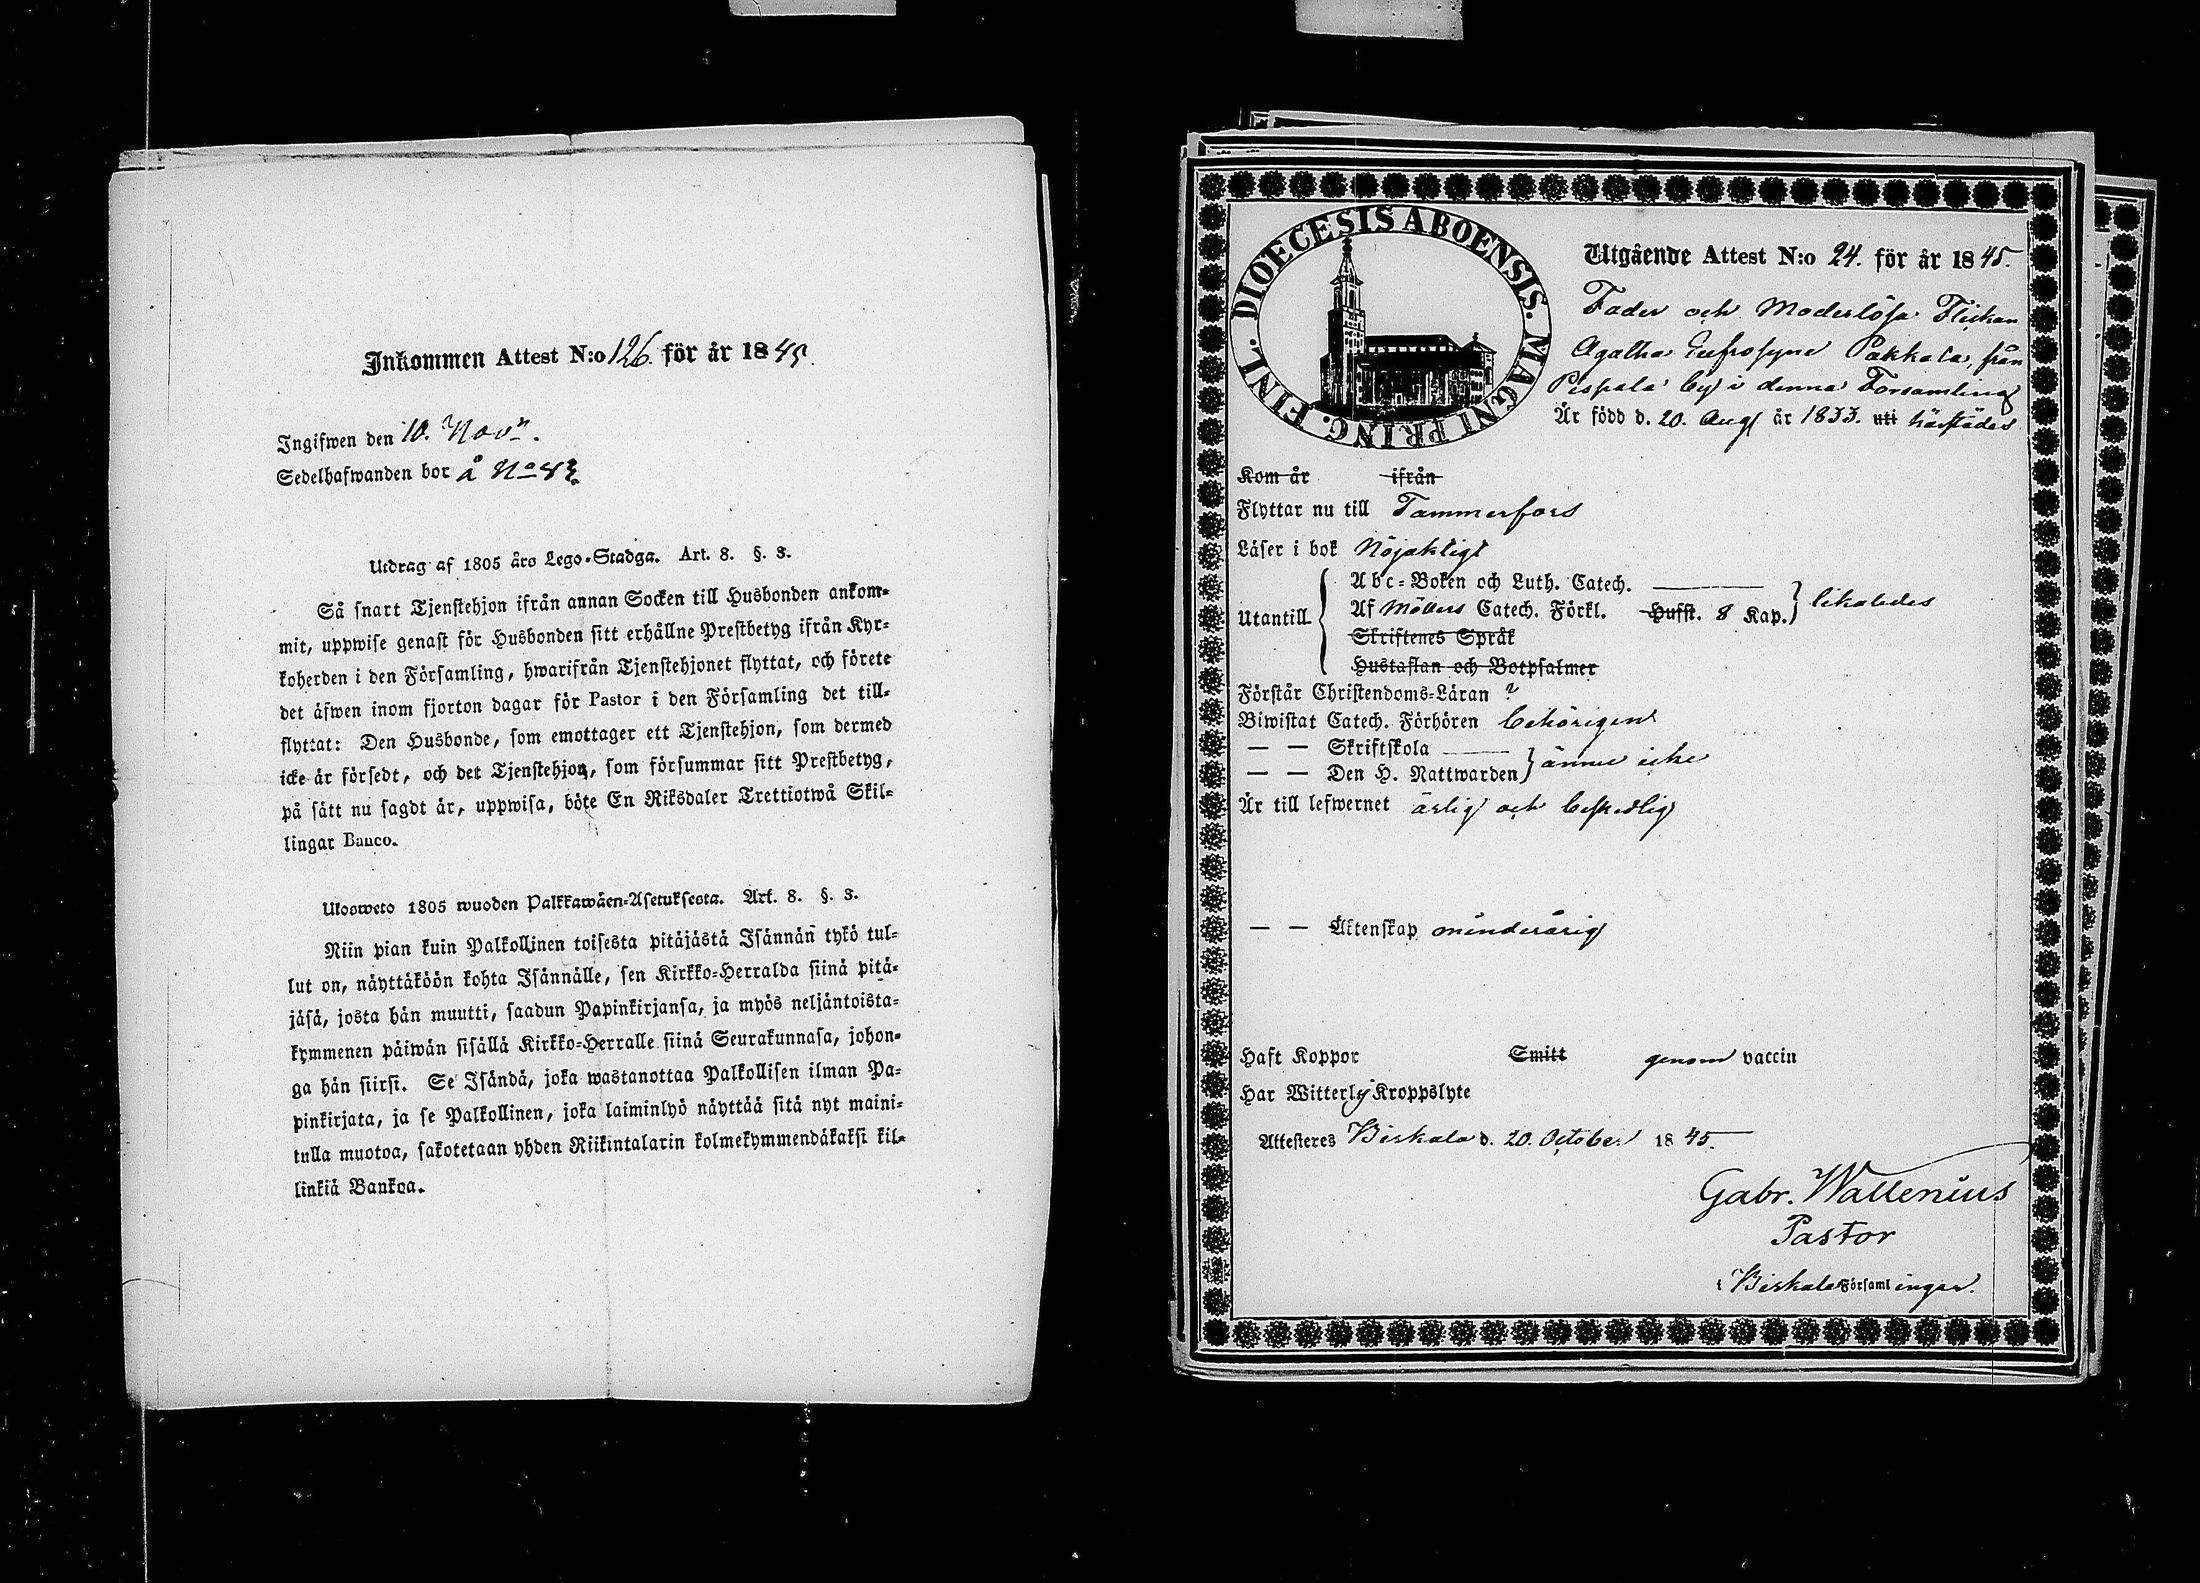 Inkommen Attest N:o 126. för år 1845.
Ingifwen den 10. Nov.
Sedelhafwanden bor å No 43
Utdrag af 1805 års Lego-Stadga. Art. 8. §. 3.
Så snart Tjenstehjon ifrån annan Socken till Husbonden ankom-
mit, uppwise genast för Husbonden sitt erhållne Prestbetyg ifrån Kyr-
koherden i den Församling, hwarifrån Tjenstehjonet flyttat, och förete
det äfwen inom fjorton dagar för Pastor i den Församling det till-
flyttat: Den Husbonde, som emottager ett Tjenstehjon, som dermed
icke är försedt, och det Tjenstehjon, som försummar sitt Prestbetyg,
på sätt nu sagdt är, uppwisa, böte En Riksdaler Trettiotwå Skil-
lingar Banco.
Ulosweto 1805 wuoden Palkkawäen-Asetuksesta. Art. 8. §. 3.
Niin pian kuin Palkollinen toisesta pitäjästä Isännän tykö tul-
lut on, näyttäköön kohta Isännälle, sen Kirkko-Herralda siinä pitä-
jäsä, josta hän muutti, saadun Papinkirjansa, ja myös neljäntoista-
kymmenen päiwän sisällä Kirkko-Herralle siinä Seurakunnasa, johon-
ga hän siirsi. Se Isändä, joka wastanottaa Palkollisen ilman Pa-
pinkirjata, ja se Palkollinen, joka laiminlyö näyttää sitä nyt maini-
tulla muotoa, sakotetaan yhden Riikintalarin kolmekymmendäkaksi kil-
linkiä Bankoa.
DIOECESIS ABOENSIS. MAGNI PRINC. FINL.
Utgående Attest N:o 24. för år 1845.
Fader och Moderlösa Flickan
Agatha Eufrosyne Pakkala, från
Pispala by i denna Församling
Är född d. 20. Aug år 1833. uti härstädes
Kom år ifrån
Flyttar nu till Tammerfors
Läser i bok Nöjaktigt
Utantill
Abc-Boken och Luth. Catech.
Af Möllers Catech. Förkl. Hufst. 8 Kap. likaledes
Skriftenes Språk
Hustaflan och Botpsalmer
Förstår Christendoms-Läran ?
Biwistat Catech. Förhören behörigen
— — Skriftskola
— — Den H. Nattwarden ännu icke
Är till lefwernet ärlig och beskedlig
— — Äktenskap minderårig
Haft Koppor Smitt genom vaccin
Har Witterlig Kroppslyte
Attesteres Birkala d. 20. October 1845.
Gabr. Wallenius
Pastor
i Birkala Församlingar.